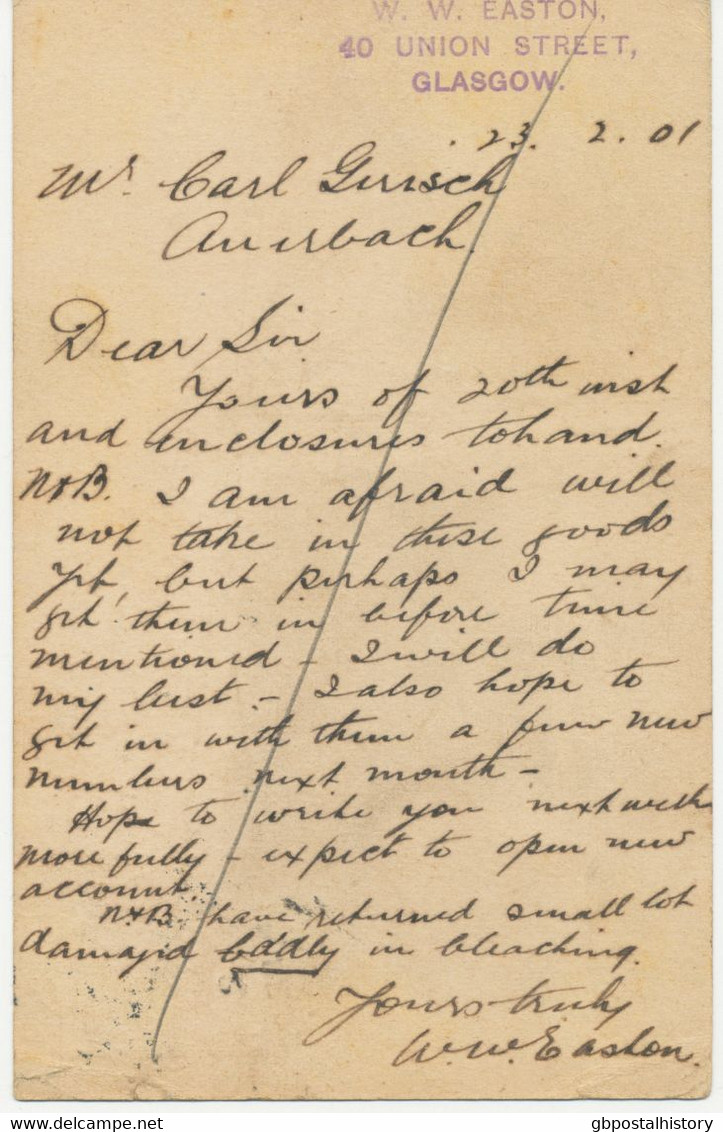 W. W. EASTON,
40 UNION STREET,
GLASGOW.
23. 2. 01
Mr Carl Girisch
Auerbach.
Dear Sir
Yours of 20th inst
and enclosures to hand.
N&B. I am afraid will
not take in these goods
yet, but perhaps I may
get them in before time
mentioned - I will do
my best. - I also hope to
get in with them a few new
numbers next month -
Hope to write you next week
more fully - expect to open new
account.
N&B. have returned small lot
damaged in bleaching.
Yours truly
W. W. Easton.
delcampe.net
gbpostalhistory